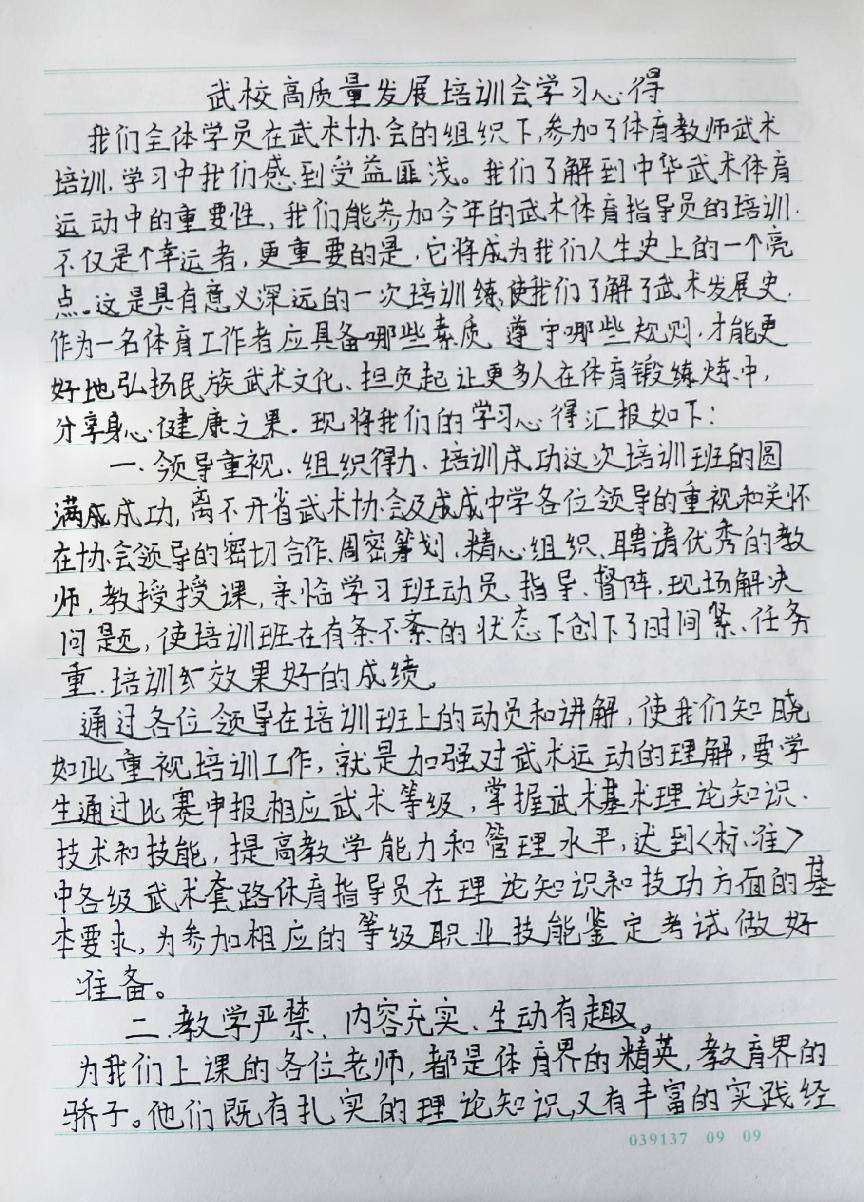 武校高质量发展培训会学习心得
我们全体学员在武术协会的组织下,参加了体育教师武术
培训,学习中我们感到受益匪浅。我们了解到中华武术体育
运动中的重要性,我们能参加今年的武术体育指导员的培训.
不仅是个幸运者,更重要的是,它将成为我们人生史上的一个亮
点。这是具有意义深远的一次培训练,使我们了解了武术发展史.
作为一名体育工作者应具备哪些素质、遵守哪些规则,才能更
好地弘扬民族武术文化、担负起让更多人在体育锻炼炼中,
分享身心健康之果。现将我们的学习心得汇报如下:
一、领导重视、组织得力、培训成功这次培训班的圆
满成成功,离不开省武术协会及成成中学各位领导的重视和关怀
在协会领导的密切合作、周密筹划、精心组织、聘请优秀的教
师,教授授课,亲临学习班动员、指导、督阵,现场解决
问题,使培训班在有条不紊的状态下创下了时间紧、任务
重、培训 效果好的成绩。
通过各位领导在培训班上的动员和讲解,使我们知晓
如此重视培训工作,就是加强对武术运动的理解,要学
生通过比赛申报相应武术等级,掌握武术基术理论知识、
技术和技能,提高教学能力和管理水平,达到<标准>
中各级武术套路体育指导员在理论知识和技功方面的基
本要求,为参加相应的等级职业技能鉴定考试做好
准备。
二、教学严禁、内容充实、生动有趣。
为我们上课的各位老师,都是体育界的精英,教育界的
骄子。他们既有扎实的理论知识,又有丰富的实践经
039137 09 09